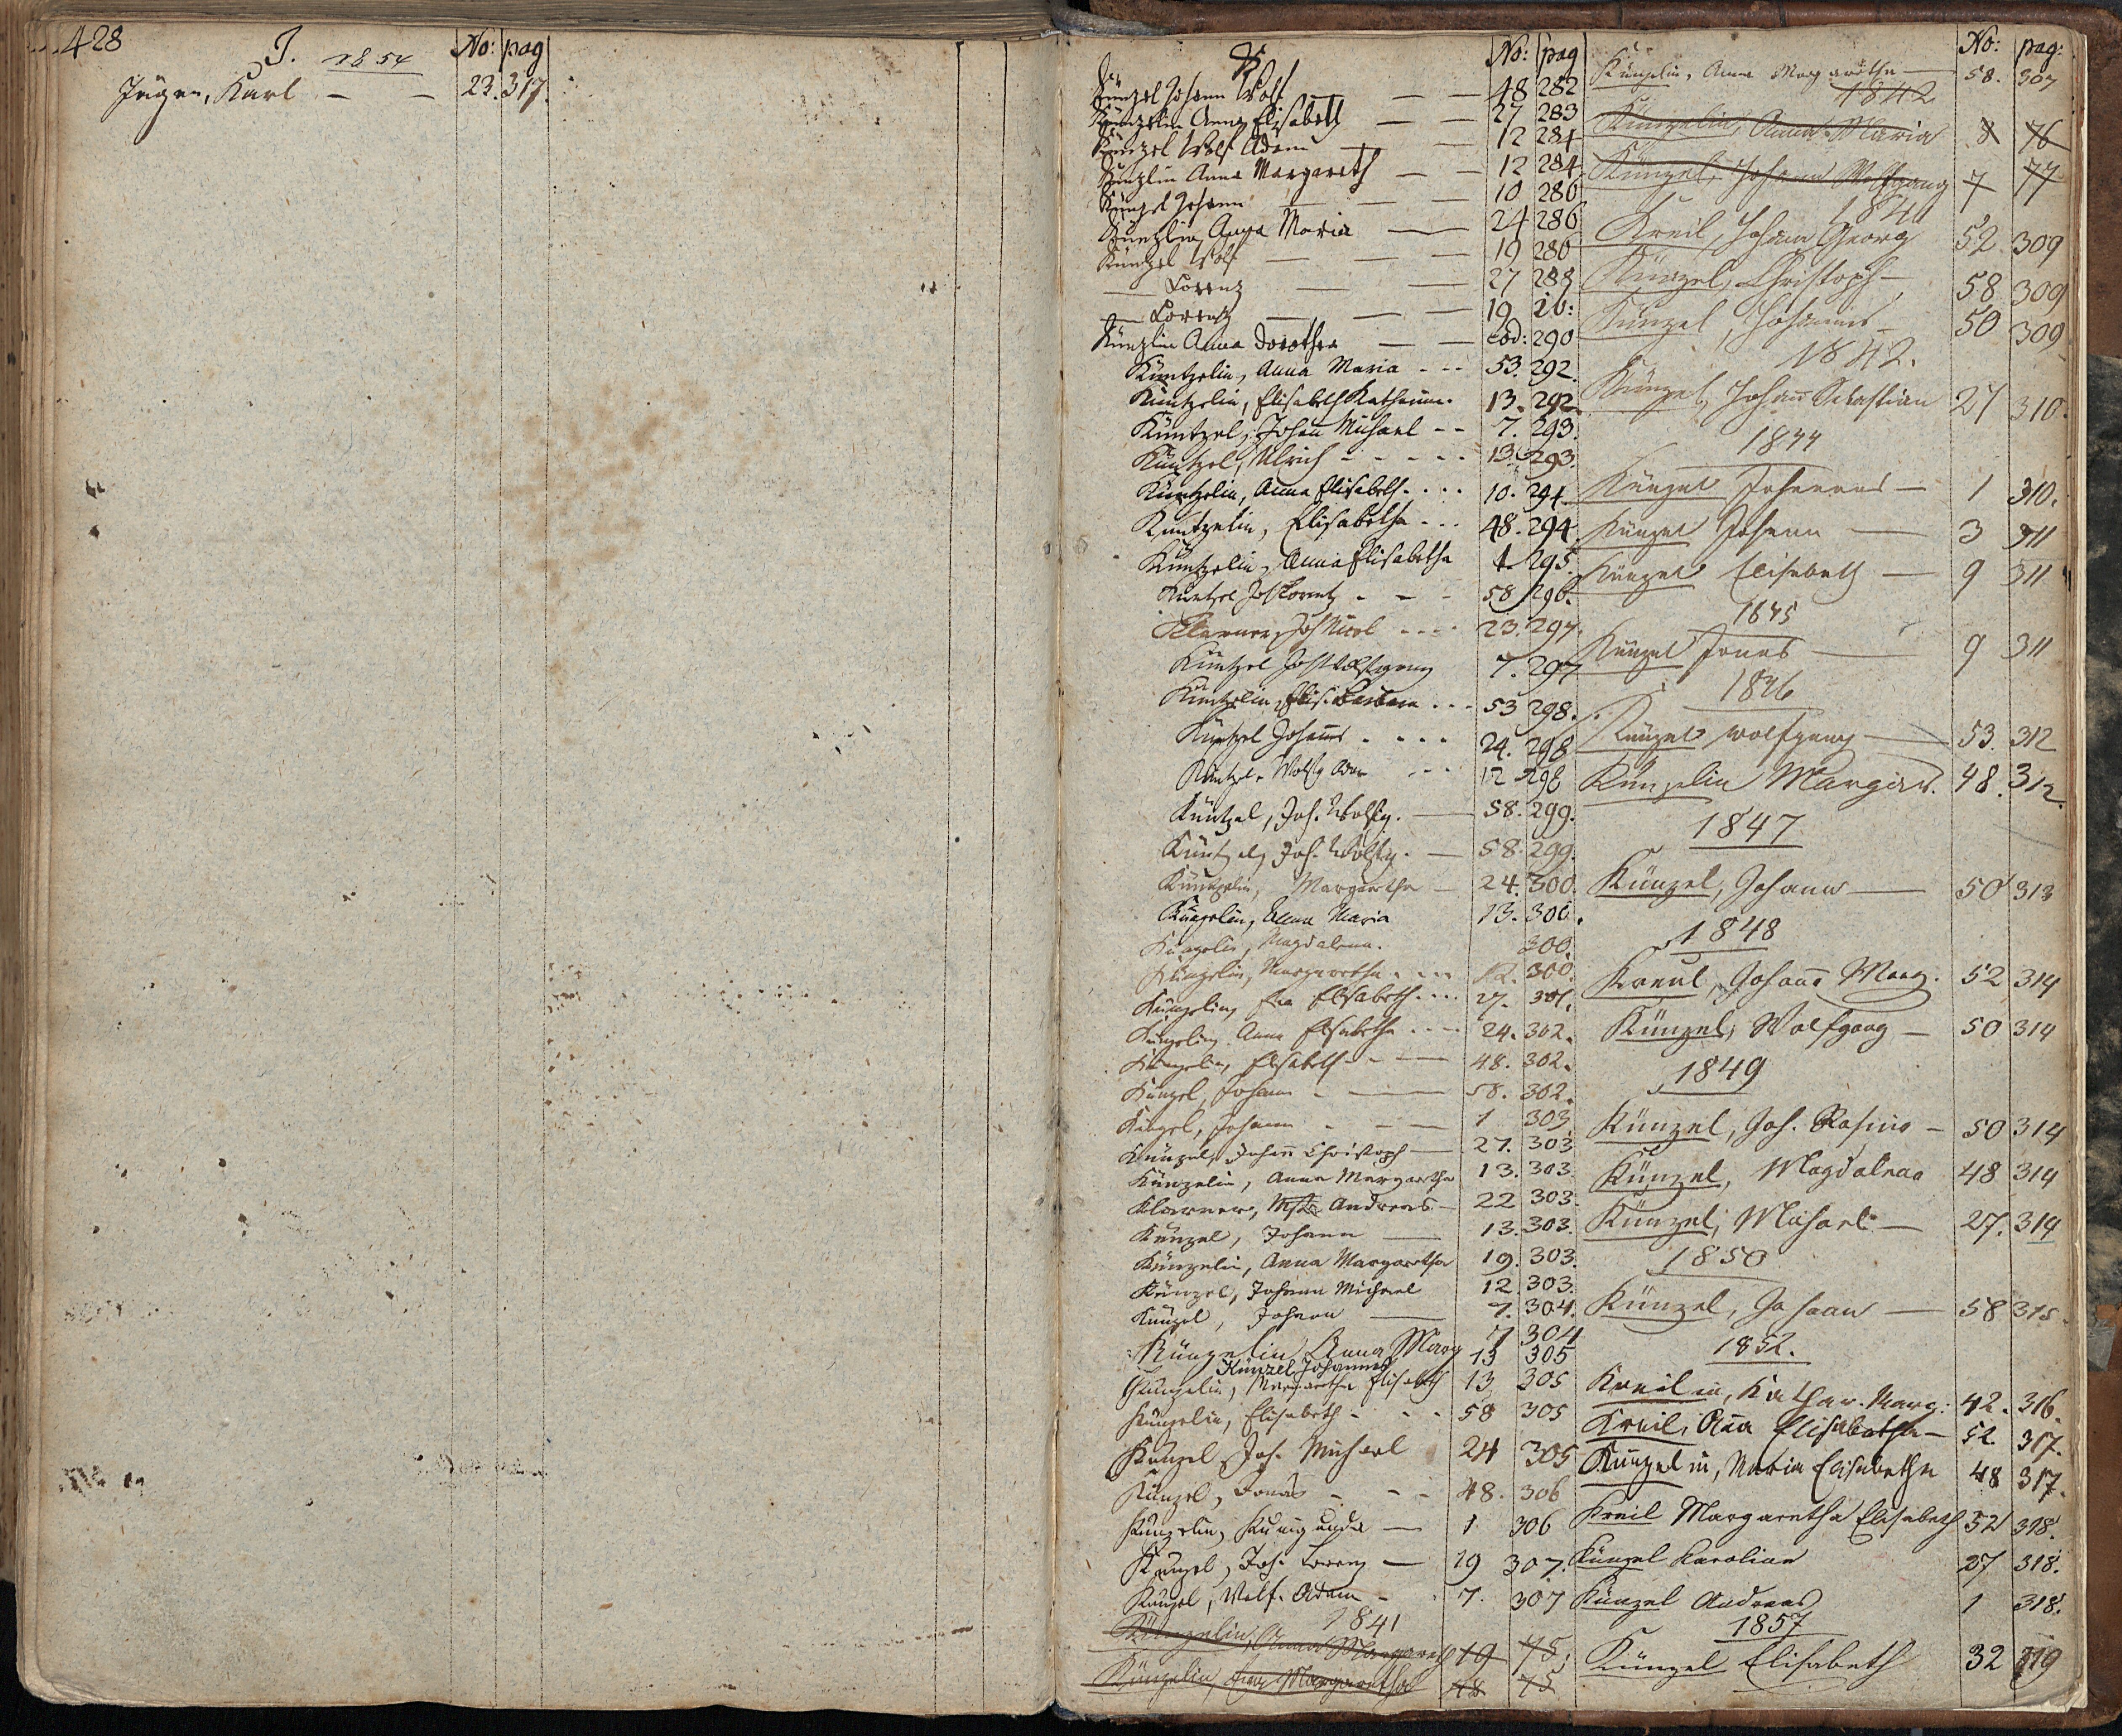 428
J. 1854 No: pag
Jäger, Karl — — 23. 317.
K No: pag
Künzel Johann Wolf — — 48 282
Künzelin Anna Elisabeth — — 27 283
Künzel Wolf Adam — 12 284
Künzlin Anna Margareth — — 12 284
Künzel Johann — — — 10 286
Künzlin Anna Maria — 24 286
Künzel Wolf — — — 19 286
— Lorenz — — 27 288
— Lorenz — — — 19 ib:
Künzlin Anna Dorothea — — eod: 290
Küntzelin, Anna Maria - - - 53. 292.
Küntzelin, Elisabeth Katharina. 13. 292.
Küntzel, Johann Michael - - 7. 293.
Küntzel, Ulrich - - - - - 13. 293.
Küntzelin, Anna Elisabeth. . . . 10. 294.
Küntzelin, Elisabetha. - . . 48. 294.
Küntzelin, Anna Elisabetha 1. 295.
Küntzel Joh Lorentz - - - 58. 296.
Klarner, Joh Nicol - - - - 23. 297.
Küntzel Joh Wolfgang 7. 297
Küntzelin, Elis. Barbara . . - 53 298.
Küntzel Johann . - - - 24. 298
Küntzel, Wolfg Adam - - - 12 298
Küntzel, Joh. Wolfg. — 58. 299.
Küntzel, Joh. Wolfg. — 58. 299.
Küntzelin, Margaretha — 24. 300.
Künzelin, Anna Maria 13. 300.
Künzelin, Magdalena. 300.
Künzelin, Margaretha. - - - 12. 300.
Künzelin, Elisabeth. - - - 27. 301.
Künzelin Anna Elisabetha - - - 24. 302.
Künzelin, Elisabeth - - — 48. 302.
Künzel, Johann - — 58. 302.
Künzel, Johann - - — 1 303
Künzel, Johann Christoph — 27. 303
Künzelin, Anna Margaretha 13. 303
Klarner, Mstr Andreas — 22 303.
Künzel, Johann — 13. 303.
Künzelin, Anna Margaretha 19. 303.
Künzel, Johann Michael 12. 303.
Künzel, Johann — 7. 304.
Künzelin Anna Marg 7 304
Künzel Johannes 13 305
Künzelin, Margaretha Elisabeth 13 305
Künzelin, Elisabeth - - - 58 305
Künzel, Joh. Michael 24 305
Künzel, Jonas - - - 48. 306
Künzelin, Kunigunda — 1 306
Künzel, Joh. Lorenz — 19 307.
Künzel, Wolf. Adam - 7. 307
1841
Künzelin, Anna Margareth 19 75.
Künzelin, Margaretha 48 75
No: pag:
Künzelin, Anna Margaretha — 58. 307
1842
Künzelin, Anna Maria 8 76
Künzel, Johann Wolfgang 7 77
1841
Kreil, Johann Georg 52. 309
Künzel, Christoph — 58 309
Künzel, Johannes — 50 309
1842.
Künzel, Johann Sebastian 27 310.
1844
Künzel Johannes — 1 310.
Künzel Johann — 3 311
Künzel Elisabeth — 9 311
1845
Künzel Jonas — 9 311
1846
Künzel Wolfgang — 53. 312
Künzelin Margar. 48. 312.
1847
Künzel, Johann — 50 313
1848
Kreul, Johann Marg. 52 314
Künzel, Wolfgang — 50 314
1849
Künzel, Joh. Rosina — 50 314
Künzel, Magdalena 48 314
Künzel, Michael — 27. 314
1850
Künzel, Johann — 58 315.
1852.
Kreilin, Kathar. Marg: 42. 316.
Kreil, Ana Elisabetha — 52. 317.
Künzelin, Maria Elisabetha 48 317.
Kreil Margaretha Elisabeth 52 318.
Künzel Karolina 27 318.
Künzel Andreas 1 318.
1857
Künzel Elisabeth 32 319